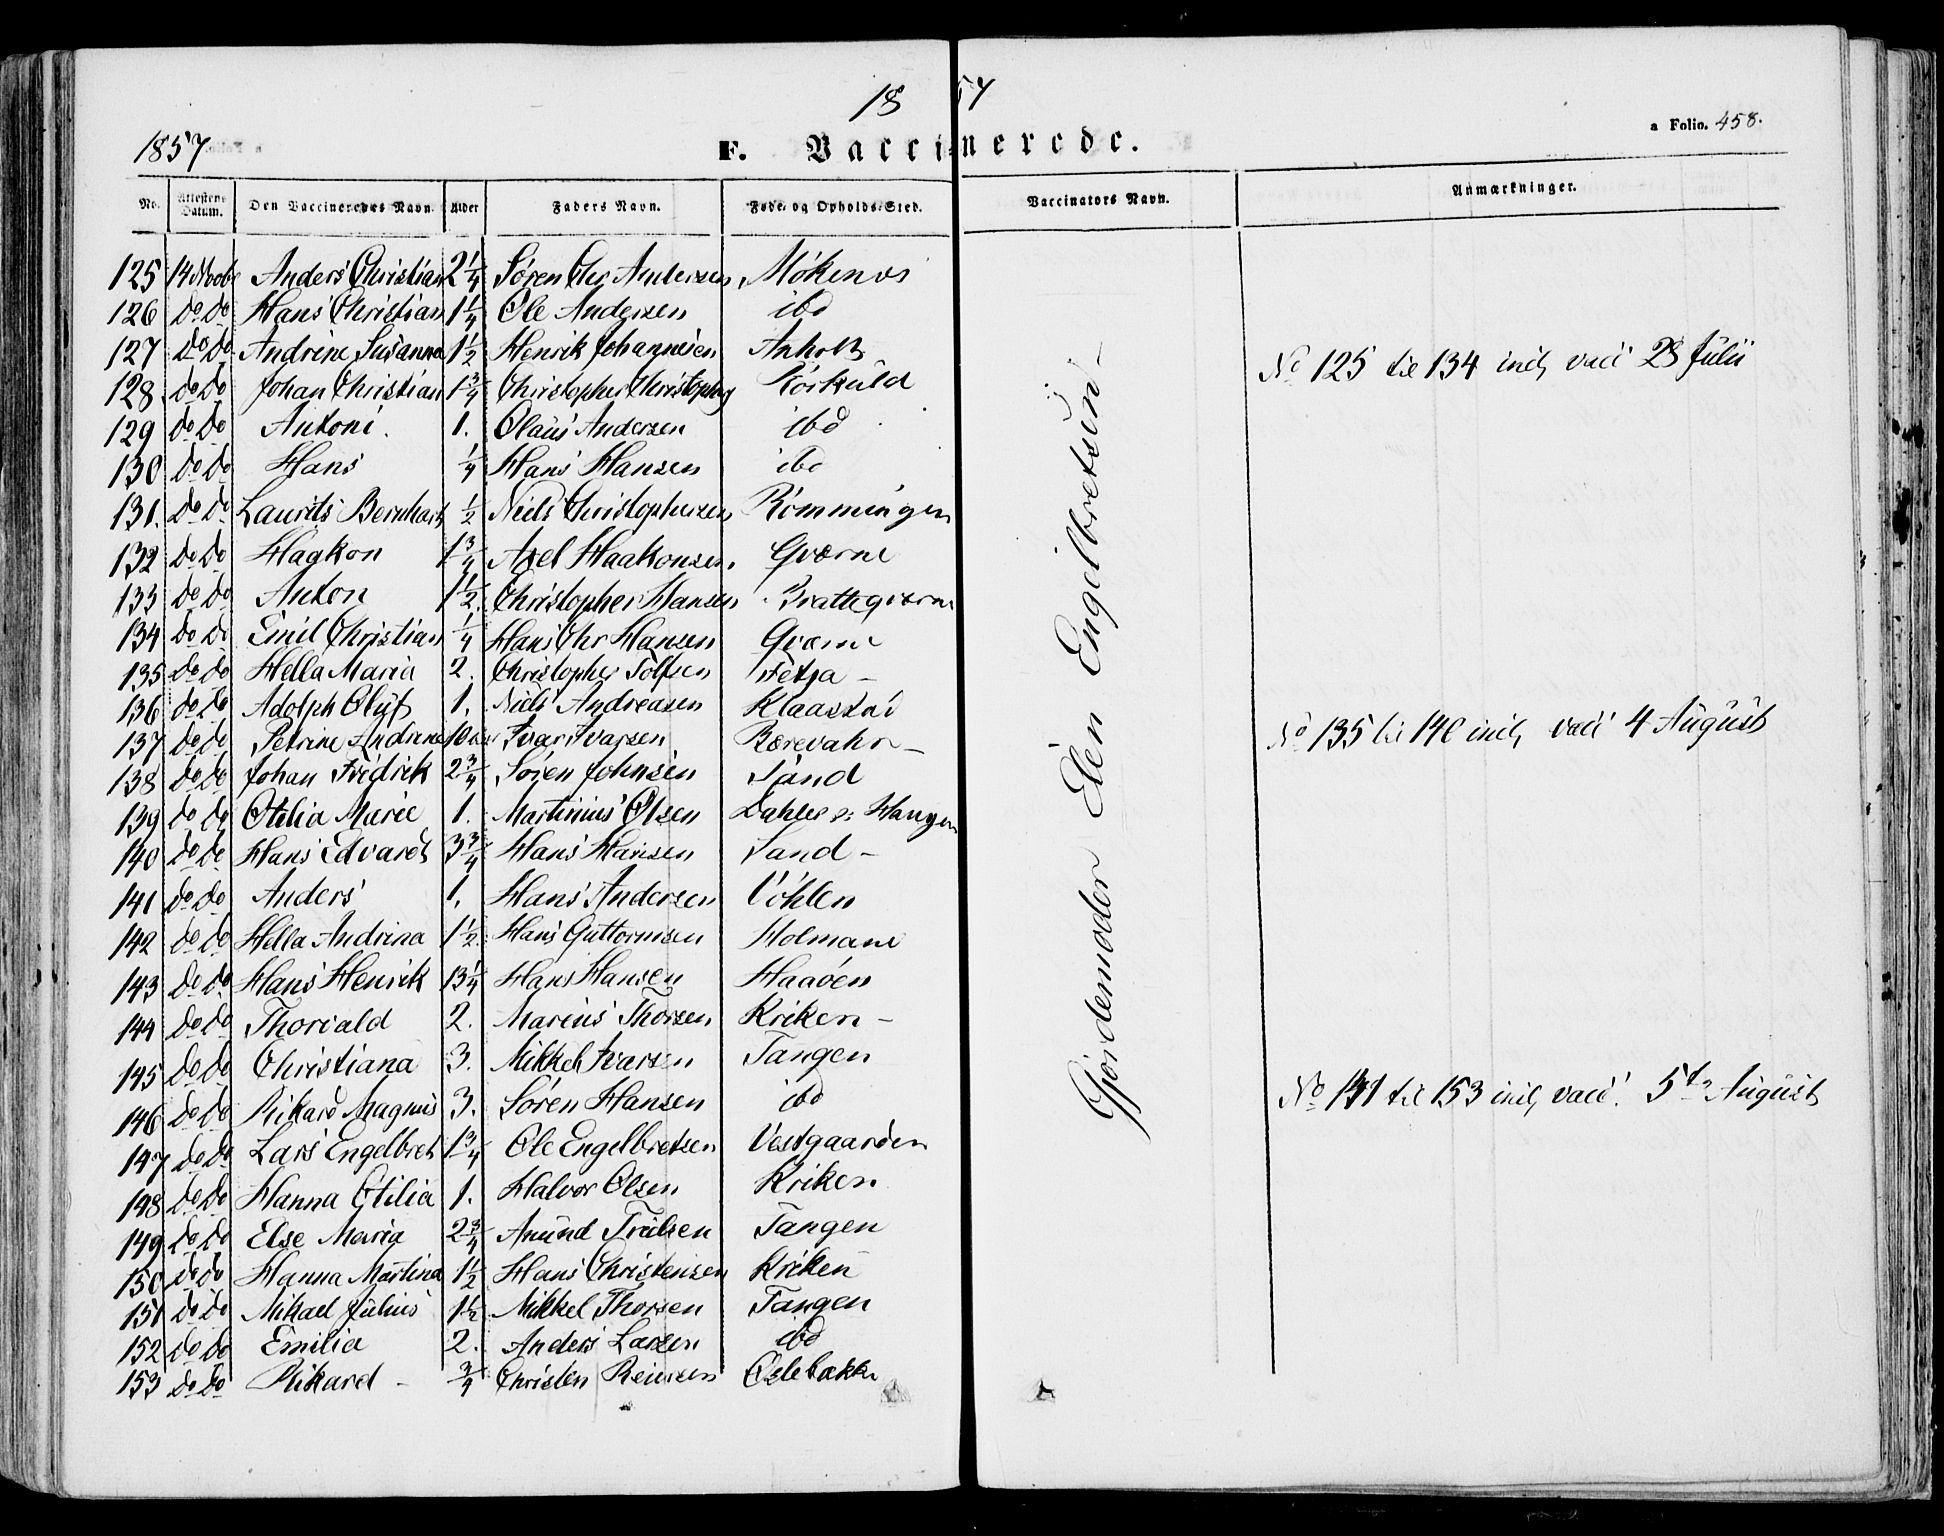 18 57
1857
F. Vaccinerede.
a Folio. 458.
No. Attestens Datum. Den Vaccineredes Navn. Alder Faders Navn. Føde- og Opholds-Sted. Vaccinators Navn. Anmærkninger.
125 14 Novbr Anders Christian 2 1/4 Søren Chr Andersen
126 do do Hans Christian 1 1/4 Ole Andersen ibd
127 do do Andrine Susanna 1 1/2 Henrik Johannesen Anholt
128 do do Johan Christian 1 3/4 Christopher Christophers Rörkuld
129 do do Antoni. 1. Olaus Andersen ibd
130 do do Hans 1/4 Hans Hansen ibd
131. do do Laurits Bernhart 1/2 Niels Christophersen Rommingen
132 do do Haakon 1 3/4 Axel Haakonsen. Qværne
133 do do Anton 1 1/2. Christopher Hansen Bratteqværne
134 do do Emil Christian 1/4 Hans Chr Hansen Qværne
135 do do Hella Maria 2. Christopher Tolfsen Fetja -
136 do do Adolph Oluf 1. Niels Andreasen
137 do do Petrine Andrine 10 Ivar Ivarsen
138 do do Johan Fredrik 2 3/4 Søren Johnsen Sand
139 do do Otilia Marie 1. Martinius Olsen
140 do do Hans Edvardt 3 3/4 Hans Hansen Sand -
141 do do Anders 1. Hans Andersen Vøhlen
142 do do Hella Andrina 1 1/2. Hans Guttormsen Holmane
143 do do Hans Henrik 13 1/4 Hans Hansen Haaøen
144 do do Thorvald 2. Marius Thorsen Kriken -
145 do do Christiana 3. Mikkel Ivarsen Tangen
146 do do Rikard Magnus 3. Søren Hansen ibd
147 do do Lars Engelbret 1 3/4 Ole Engelbretsen Vestgaarden
148 do do Hanna Otilia 1. Halvor Olsen Kriken
149 do do Else Maria 2 3/4 Amund Trulsen Tangen
150 do do Hanna Martina 1 1/2 Hans Christensen Kriken
151 do do Mikael Julius 1 1/2 Mikkel Thorsen Tangen
152 do do Emilia 2. Anders Larsen ibd
153 do do Rikard - 3/4 Christen Reiersen Oslebakke
Gjordemoder Elen Engelbretsen -
No 125 til 134 incl, vacc 28 Julii
No 135 til 140 incl, vacc 4 August
No 141 til 153 incl, vacc. 5te August